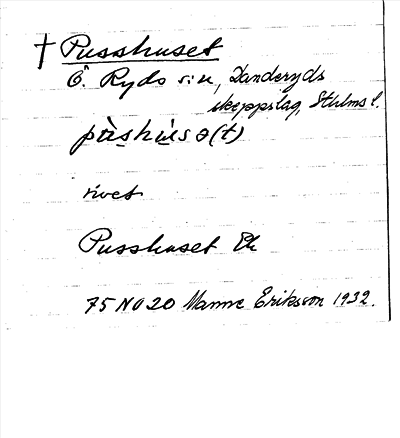 † Pusshuset
Ö. Ryds sn, Danderyds
skeppslag, Sthlms l.
pùshùsə(t)
rivet
Pusshuset Ek
75 NO 20 Manne Eriksson 1932.